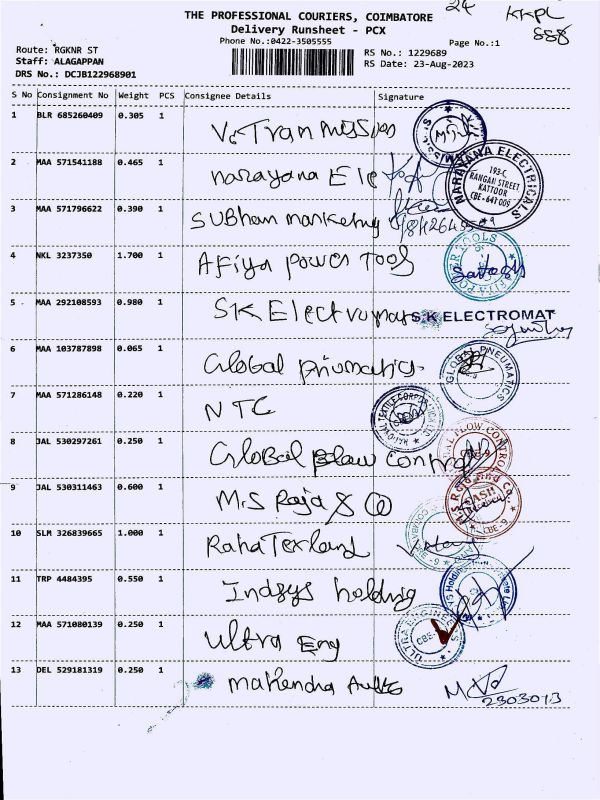 24
KKPL
888
THE PROFESSIONAL COURIERS, COIMBATORE
Delivery Runsheet - PCX
Phone No.:0422-3505555
Page No.:1
Route: RGKNR ST
Staff: ALAGAPPAN
DRS No.: DCJB122968901
RS No.: 1229689
RS Date: 23-Aug-2023
S No Consignment No Weight PCS Consignee Details Signature
1 BLR 685260409 0.305 1
2 MAA 571541188 0.465 1 Narayana Ele
NARAYANA ELECTRICALS
193-C,
RANGAN STREET
KATTOOR
CBE - 641 009
3 MAA 571796622 0.390 1 Subham marketing
4 NKL 3237350 1.700 1 Afiya power Tools
5 MAA 292108593 0.980 1
S.K ELECTROMAT
6 MAA 103787898 0.065 1 Global
GLOBAL PNEUMATICS
7 MAA 571286148 0.220 1 NTC
8 JAL 530297261 0.250 1 Global Flow Control
9 JAL 530311463 0.600 1 M.S Raja & Co
10 SLM 326839665 1.000 1 Raha Texland
11 TRP 4484395 0.550 1 Indsys holding
12 MAA 571080139 0.250 1 Ultra Eng
13 DEL 529181319 0.250 1 Mahendra Auto
2303013